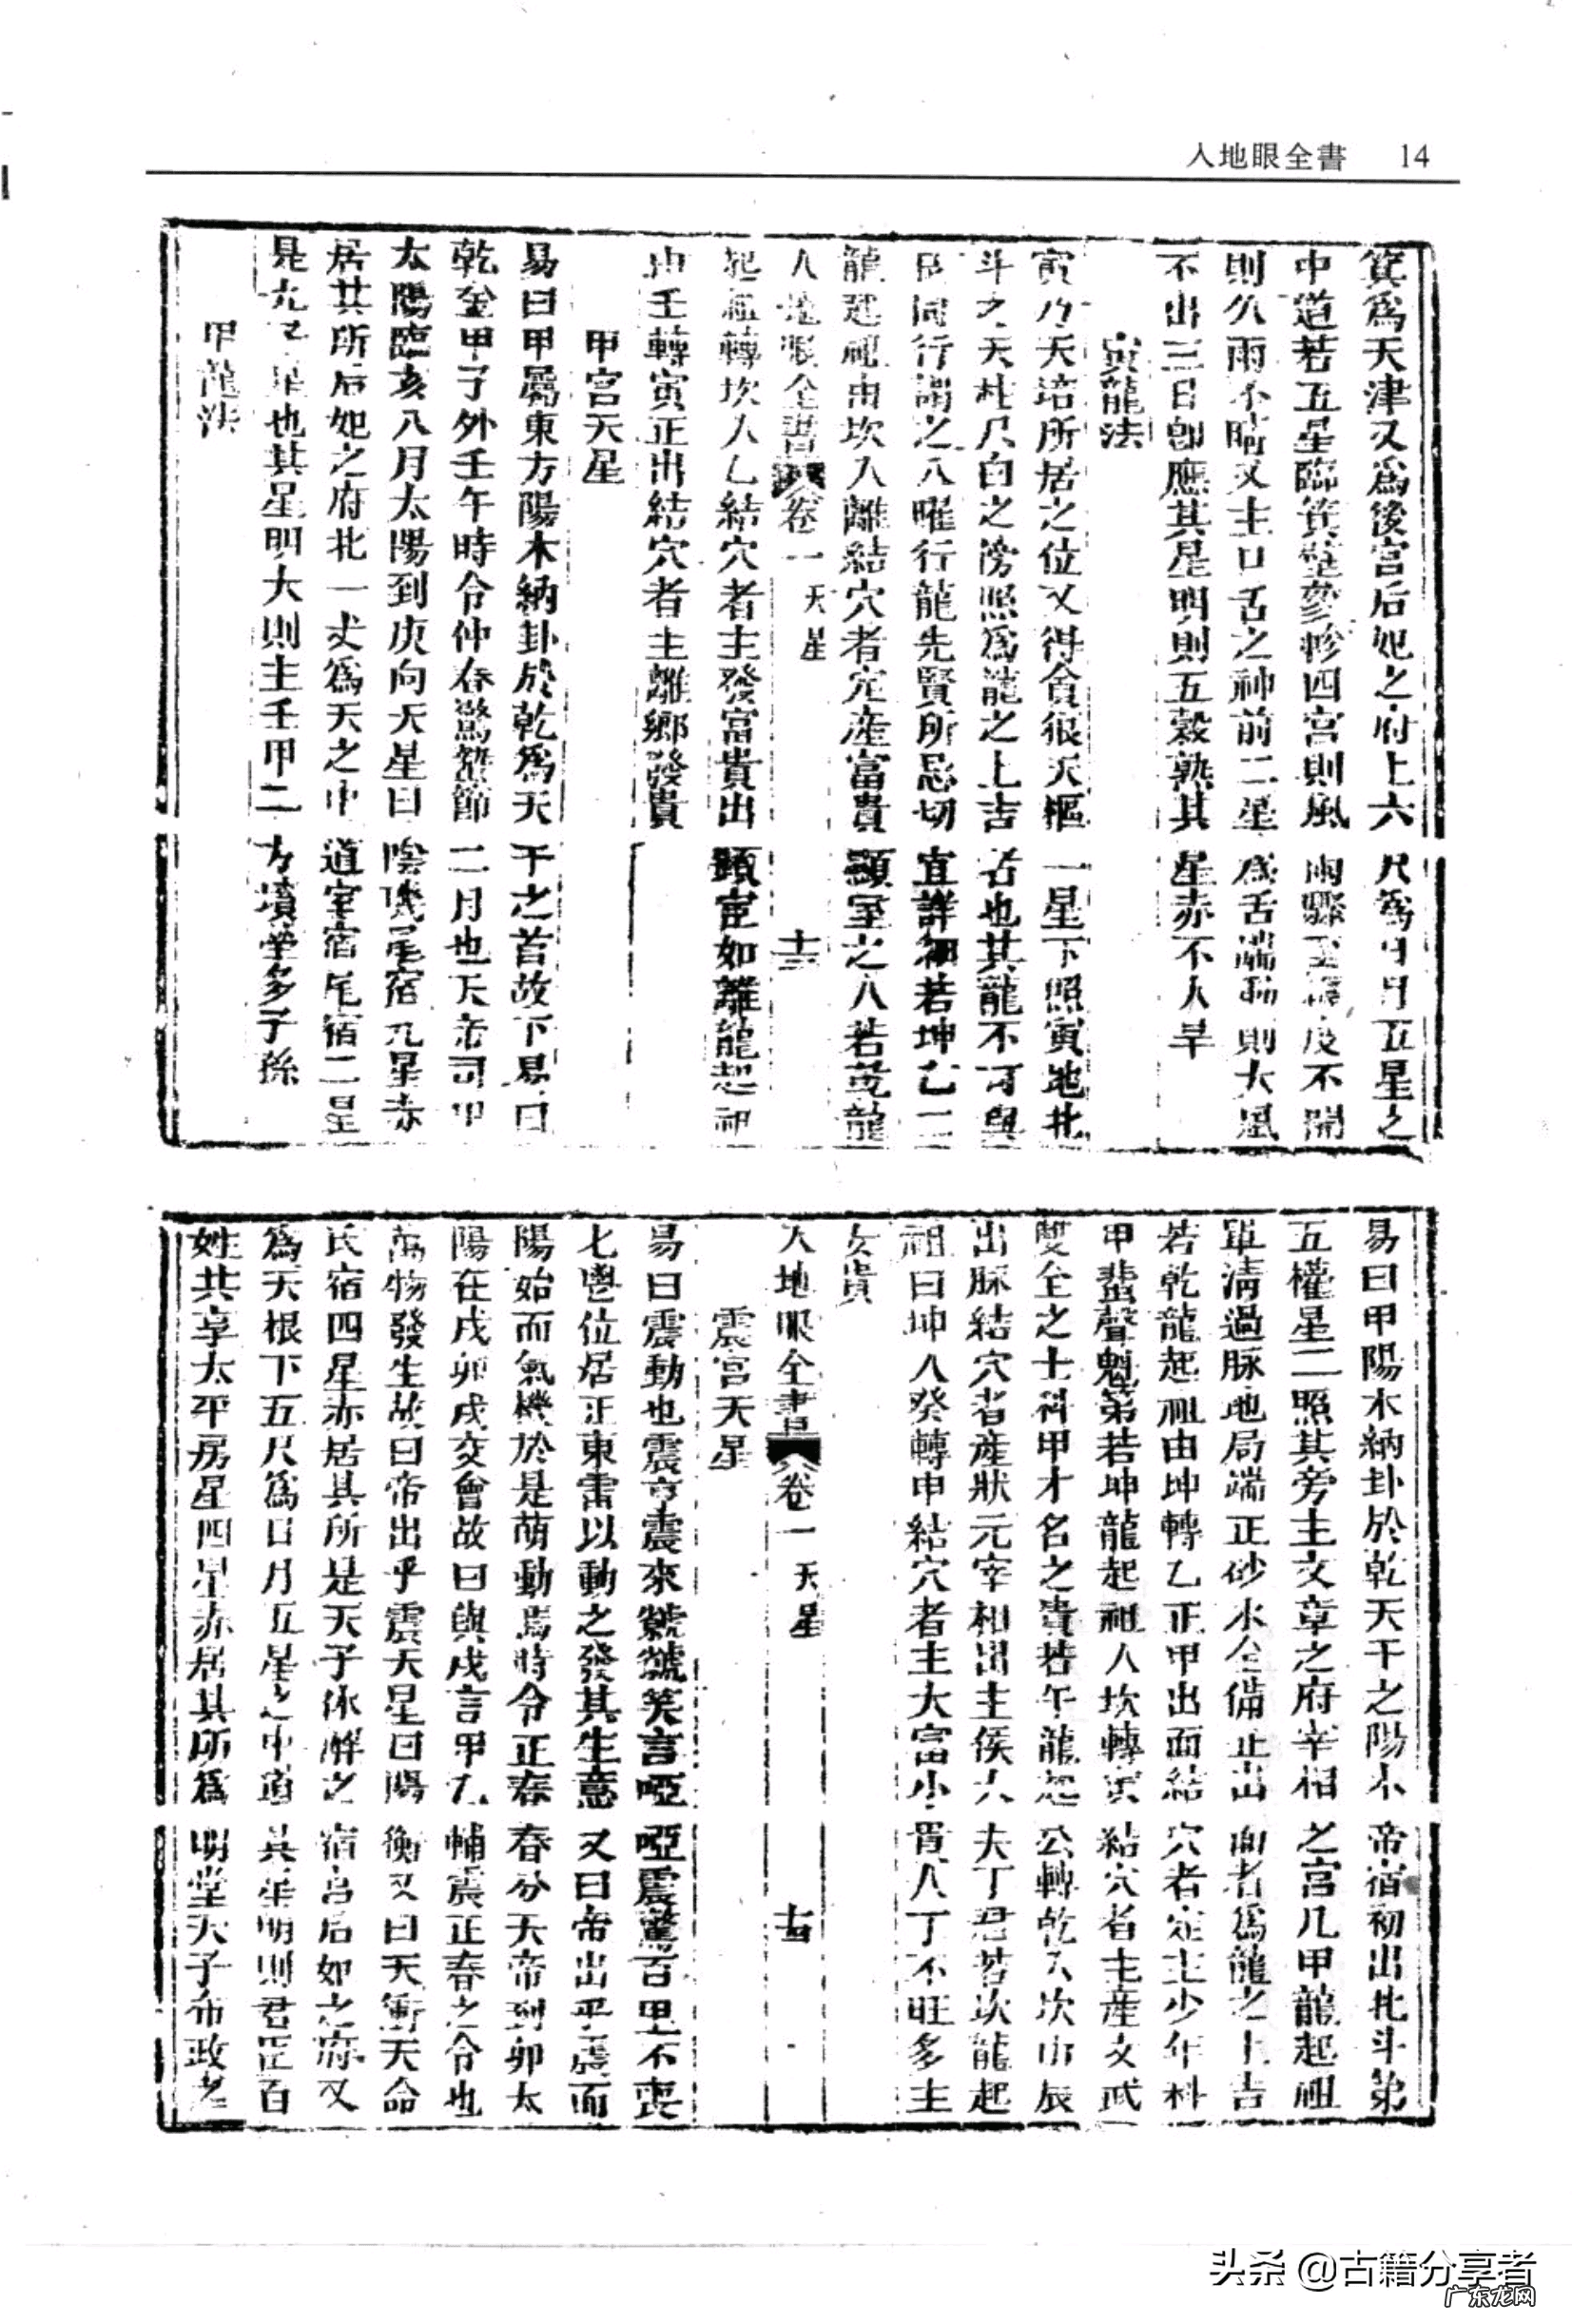 人地眼全書 14
箕為天津又為後宮后妃之府上六尺為日月五星之
中道若五星臨箕壁參軫四宮則風雨驟至不開
則久雨不晴又主口舌之神前二星為舌端動則大風
不出三日卽應其星明則五穀熟其星赤不入旱
寅龍法
寅乃天培所居之位又得貪狼天樞一星下照寅地北
斗之天柱尺白之傍照為龍之上吉者也其龍不可與
同行謂之八曜行龍先賢所忌切宜詳細若坤乙二
龍起祖由坎入離結穴者定產富貴顯宦之人若艮龍
人地眼全書 卷一 天星 十三
起祖轉坎入乙結穴者主發富貴出顯宦如離龍起祖
由壬轉寅正出結穴者主離鄉發貴
甲宮天星
易曰甲屬東方陽木納卦於乾為天干之首故下易曰
乾金甲子外壬午時令仲春驚蟄節二月也天帝司甲
太陽臨亥八月太陽到庚向天星曰陰璣尾宿九星赤
居其所后妃之府北一丈為天之中道室宿尾宿二星
是九子星也其星明大則主壬甲二方墳塋多子孫
甲龍法
易曰甲陽木納卦於乾天干之陽木帝宿初出北斗第
五權星二照其旁主文章之府宰相之宮凡甲龍起祖
單清過脉地局端正砂水全備正出面者為龍之上吉
若乾龍起祖由坤轉乙正甲出面結穴者定主少年科
甲蜚聲魁第若坤龍起祖入坎轉寅結穴者主產文武
雙全之士科甲才名之貴若午龍起公轉乾入坎由辰
出脉結穴者產狀元宰相出主侯大夫丁君若坎龍起
祖曰坤入癸轉申結穴者主大富小貴人丁不旺多主
女貴
人地眼全書 卷一 天星 十四
震宮天星
易曰震動也震亨震來虩虩笑言啞啞震驚百里不喪
匕鬯位居正東雷以動之發其生意又曰帝出乎震而
陽始而氣機於是萌動焉時令正春春分天帝到卯太
陽在戌卯戌交會故曰與戌言甲乙輔震正春之令也
萬物發生故曰帝出乎震天星曰陽衡又曰天衝天命
氐宿四星赤居其所是天子休解之宿宮后妃之府又
為天根下五尺為日月五星之中道其星明則君臣百
姓共享太平房星四星赤居其所為明堂天子布政之
头条 @古籍分享者
广东龙网